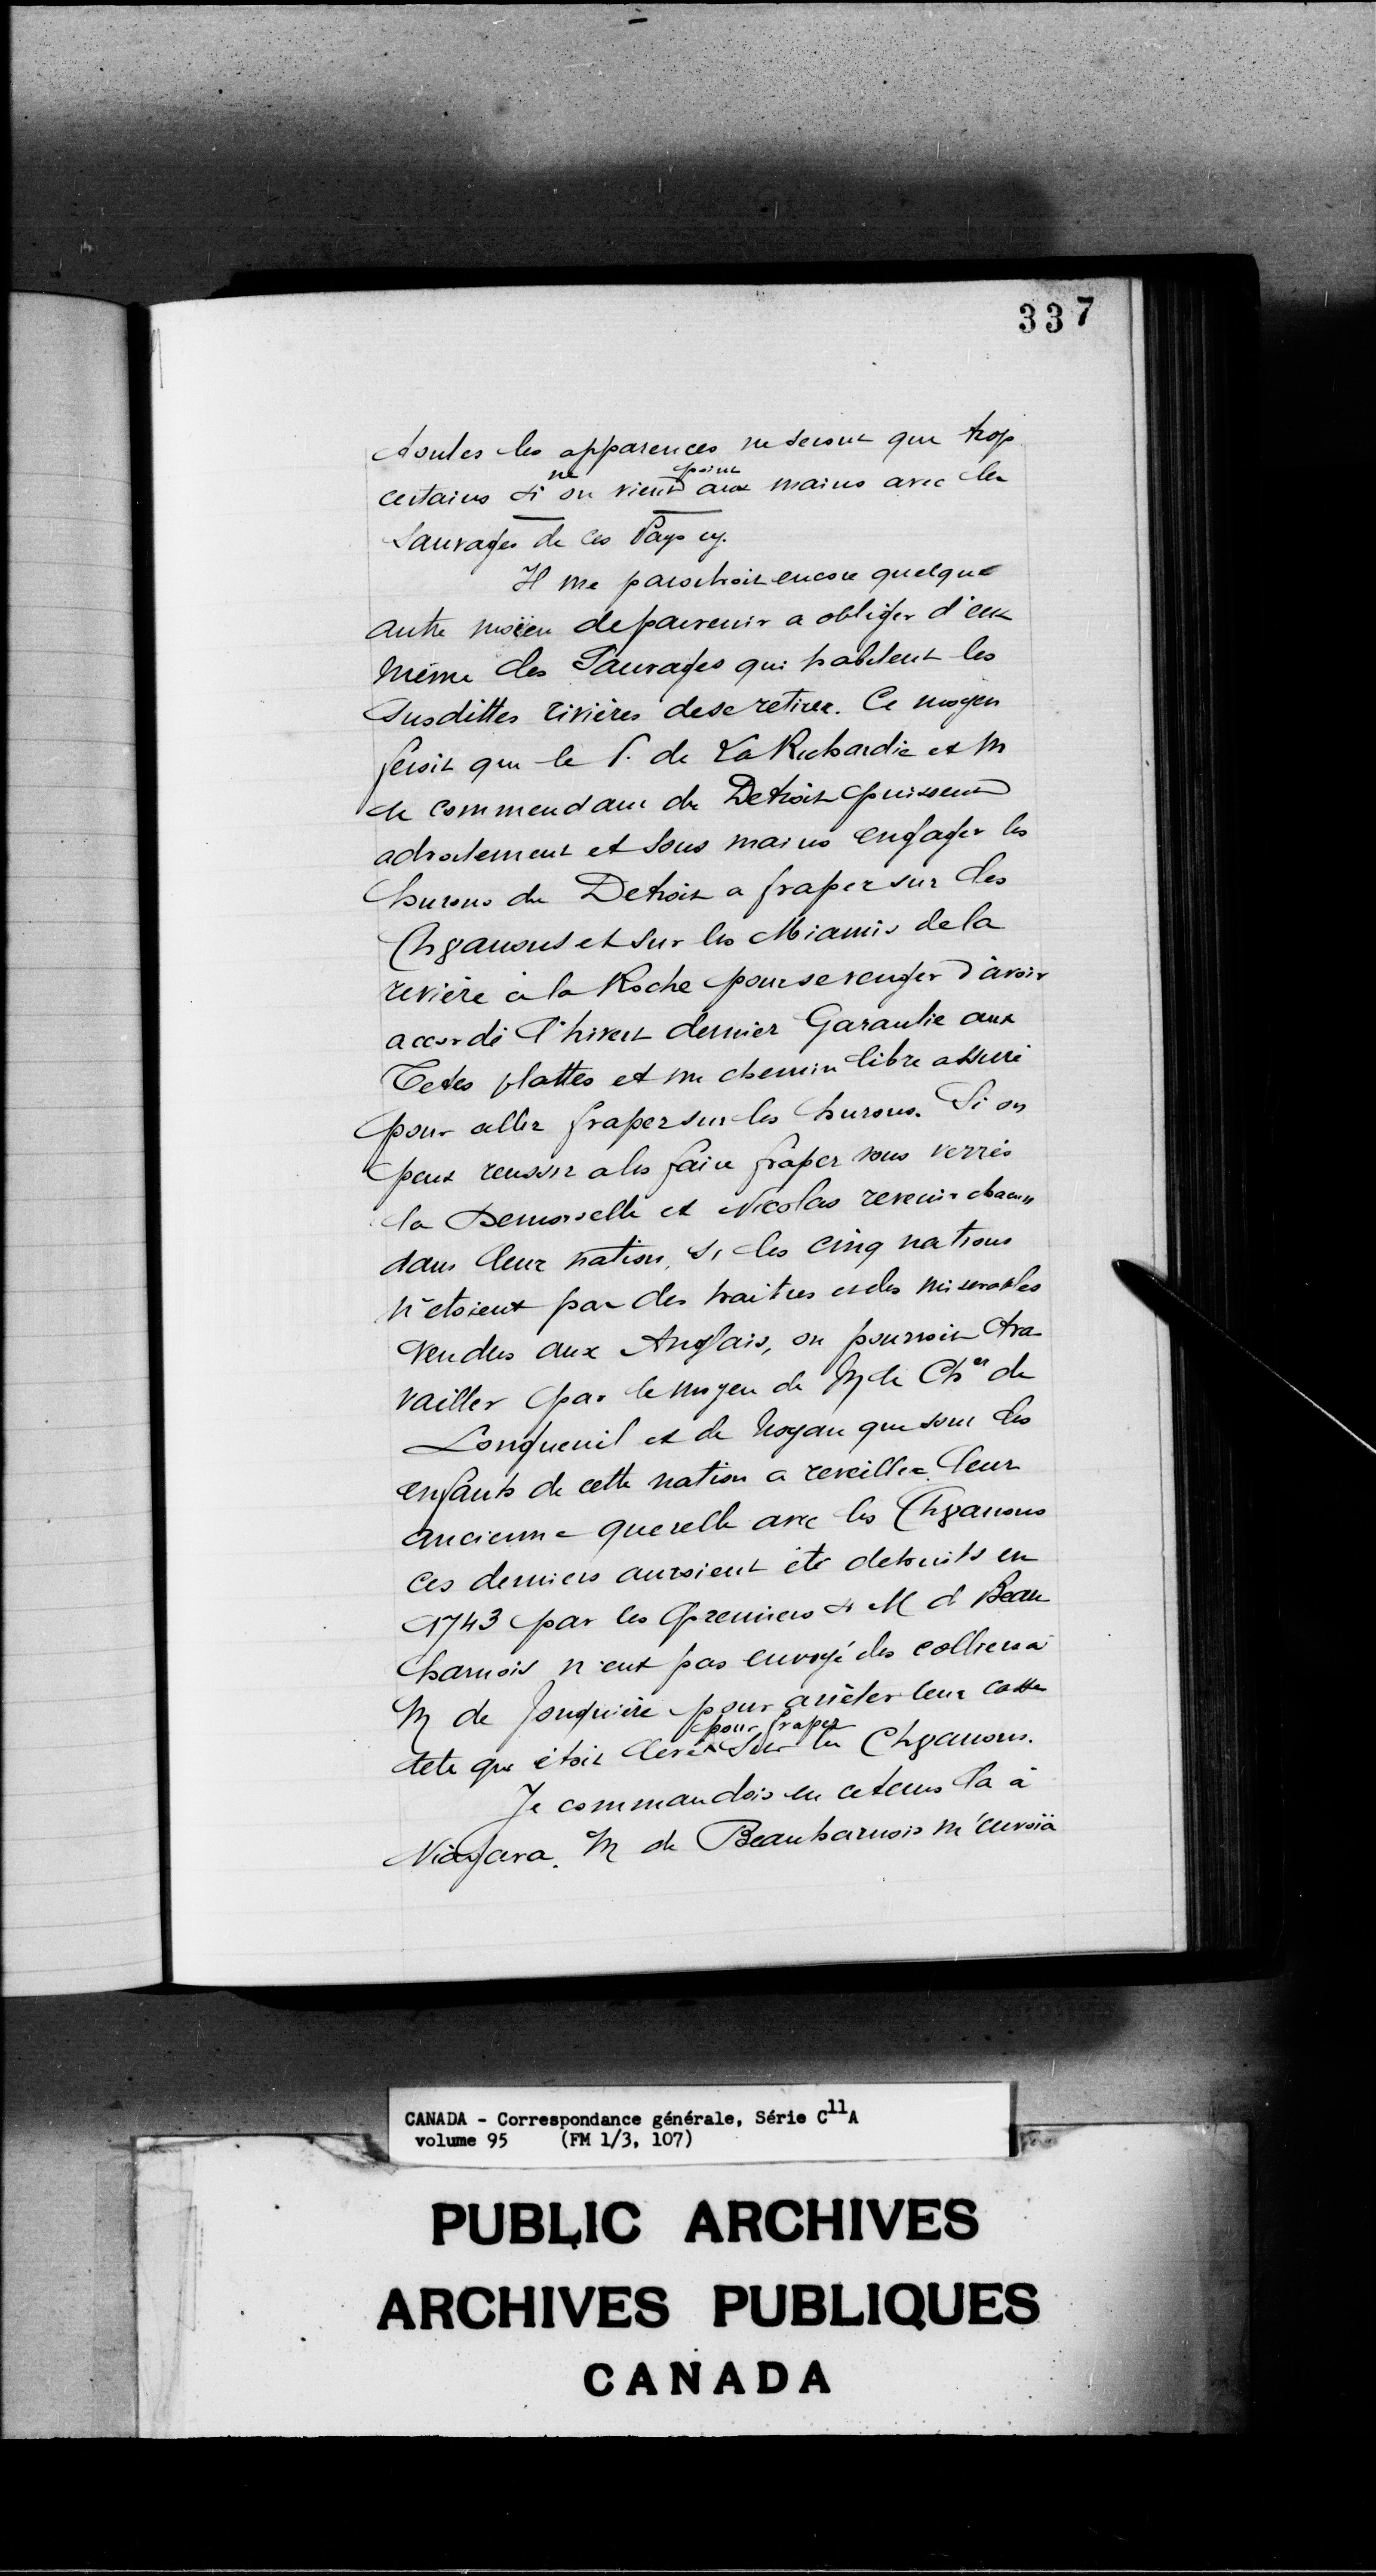 337
toutes les apparences ne seront que trop
certains si on ne vient point aux mains avec les
Sauvages de ces Pays cy.
Il me paroitroit encore quelque
autre moïen de parvenir a obliger d'eux
même les Sauvages qui habitent les
susdittes rivières de se retirer. Ce moyen
seroit que le P. de La Richardie et M
le commendant du Detroit puissent
adroitement et sous mains engager les
hurons du Detroit a fraper sur les
Ch8anons et sur les Miamis de la
rivière à la Roche pour se venger d'avoir
accordé l'hivert dernier Garantie aux
Tetes plattes et un chemin libre assuré
pour aller fraper sur les hurons. Si on
peut reussir a les faire fraper vous verrés
la Demoiselle et Nicolas revenir chacun
dans leur nation, si les cinq nations
n'etoient par des traitres et des miserables
vendus aux Anglais, on pourroit tra
vailler par le moyen de M le Cher de
Longueuil et de Noyan que sont les
enfants de cette nation a reveiller leur
ancienne querelle avec les Ch8anons
ces derniers auroient été detruits en
1743 par les premiers si M d Beau
harnois n'eut pas envoyé des colliers à
M de Jonquière pour arrêter leur casse
tete que étoit levé pour fraper sur les Ch8anons.
Je commandois en ce tems la à
Niagara. M de Beauharnois m'envoïa
CANADA - Correspondance générale, Série C11A
volume 95 (FM 1/3, 107)
PUBLIC ARCHIVES
ARCHIVES PUBLIQUES
CANADA